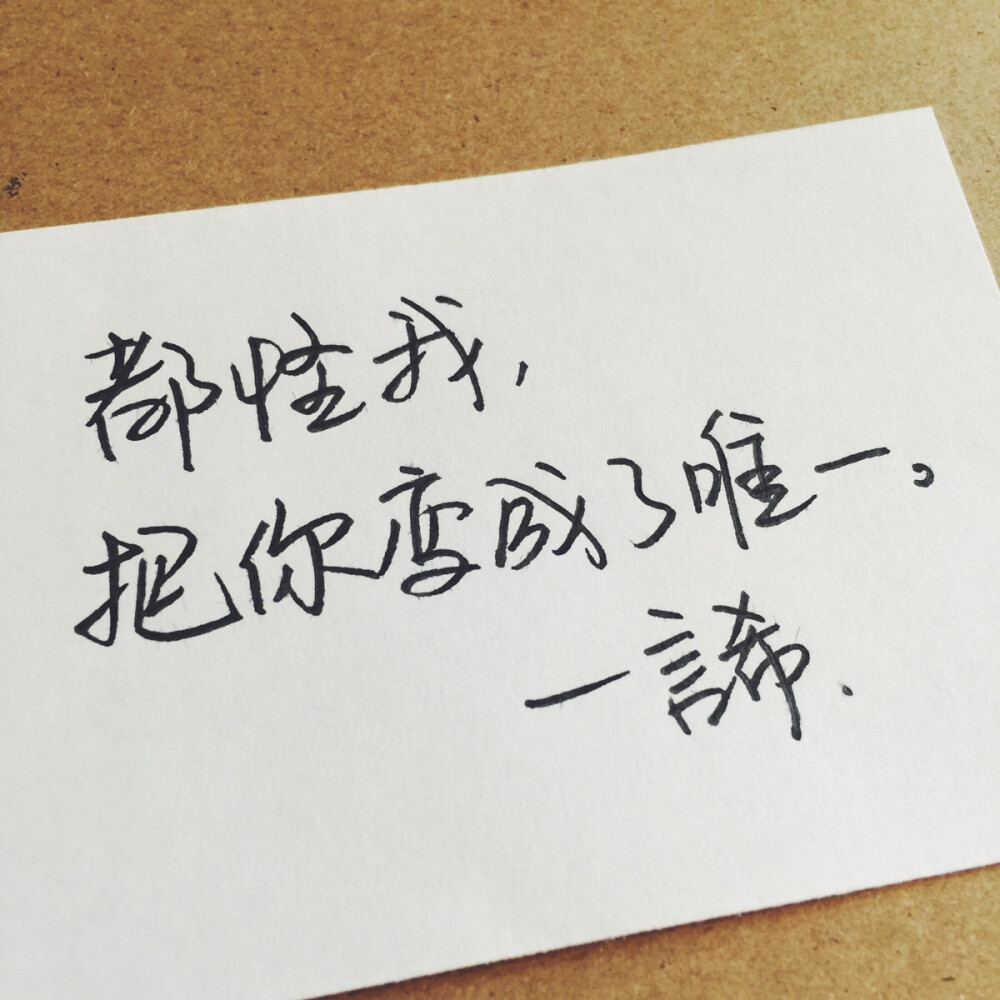 都怪我,
把你变成了唯一。
一諦.